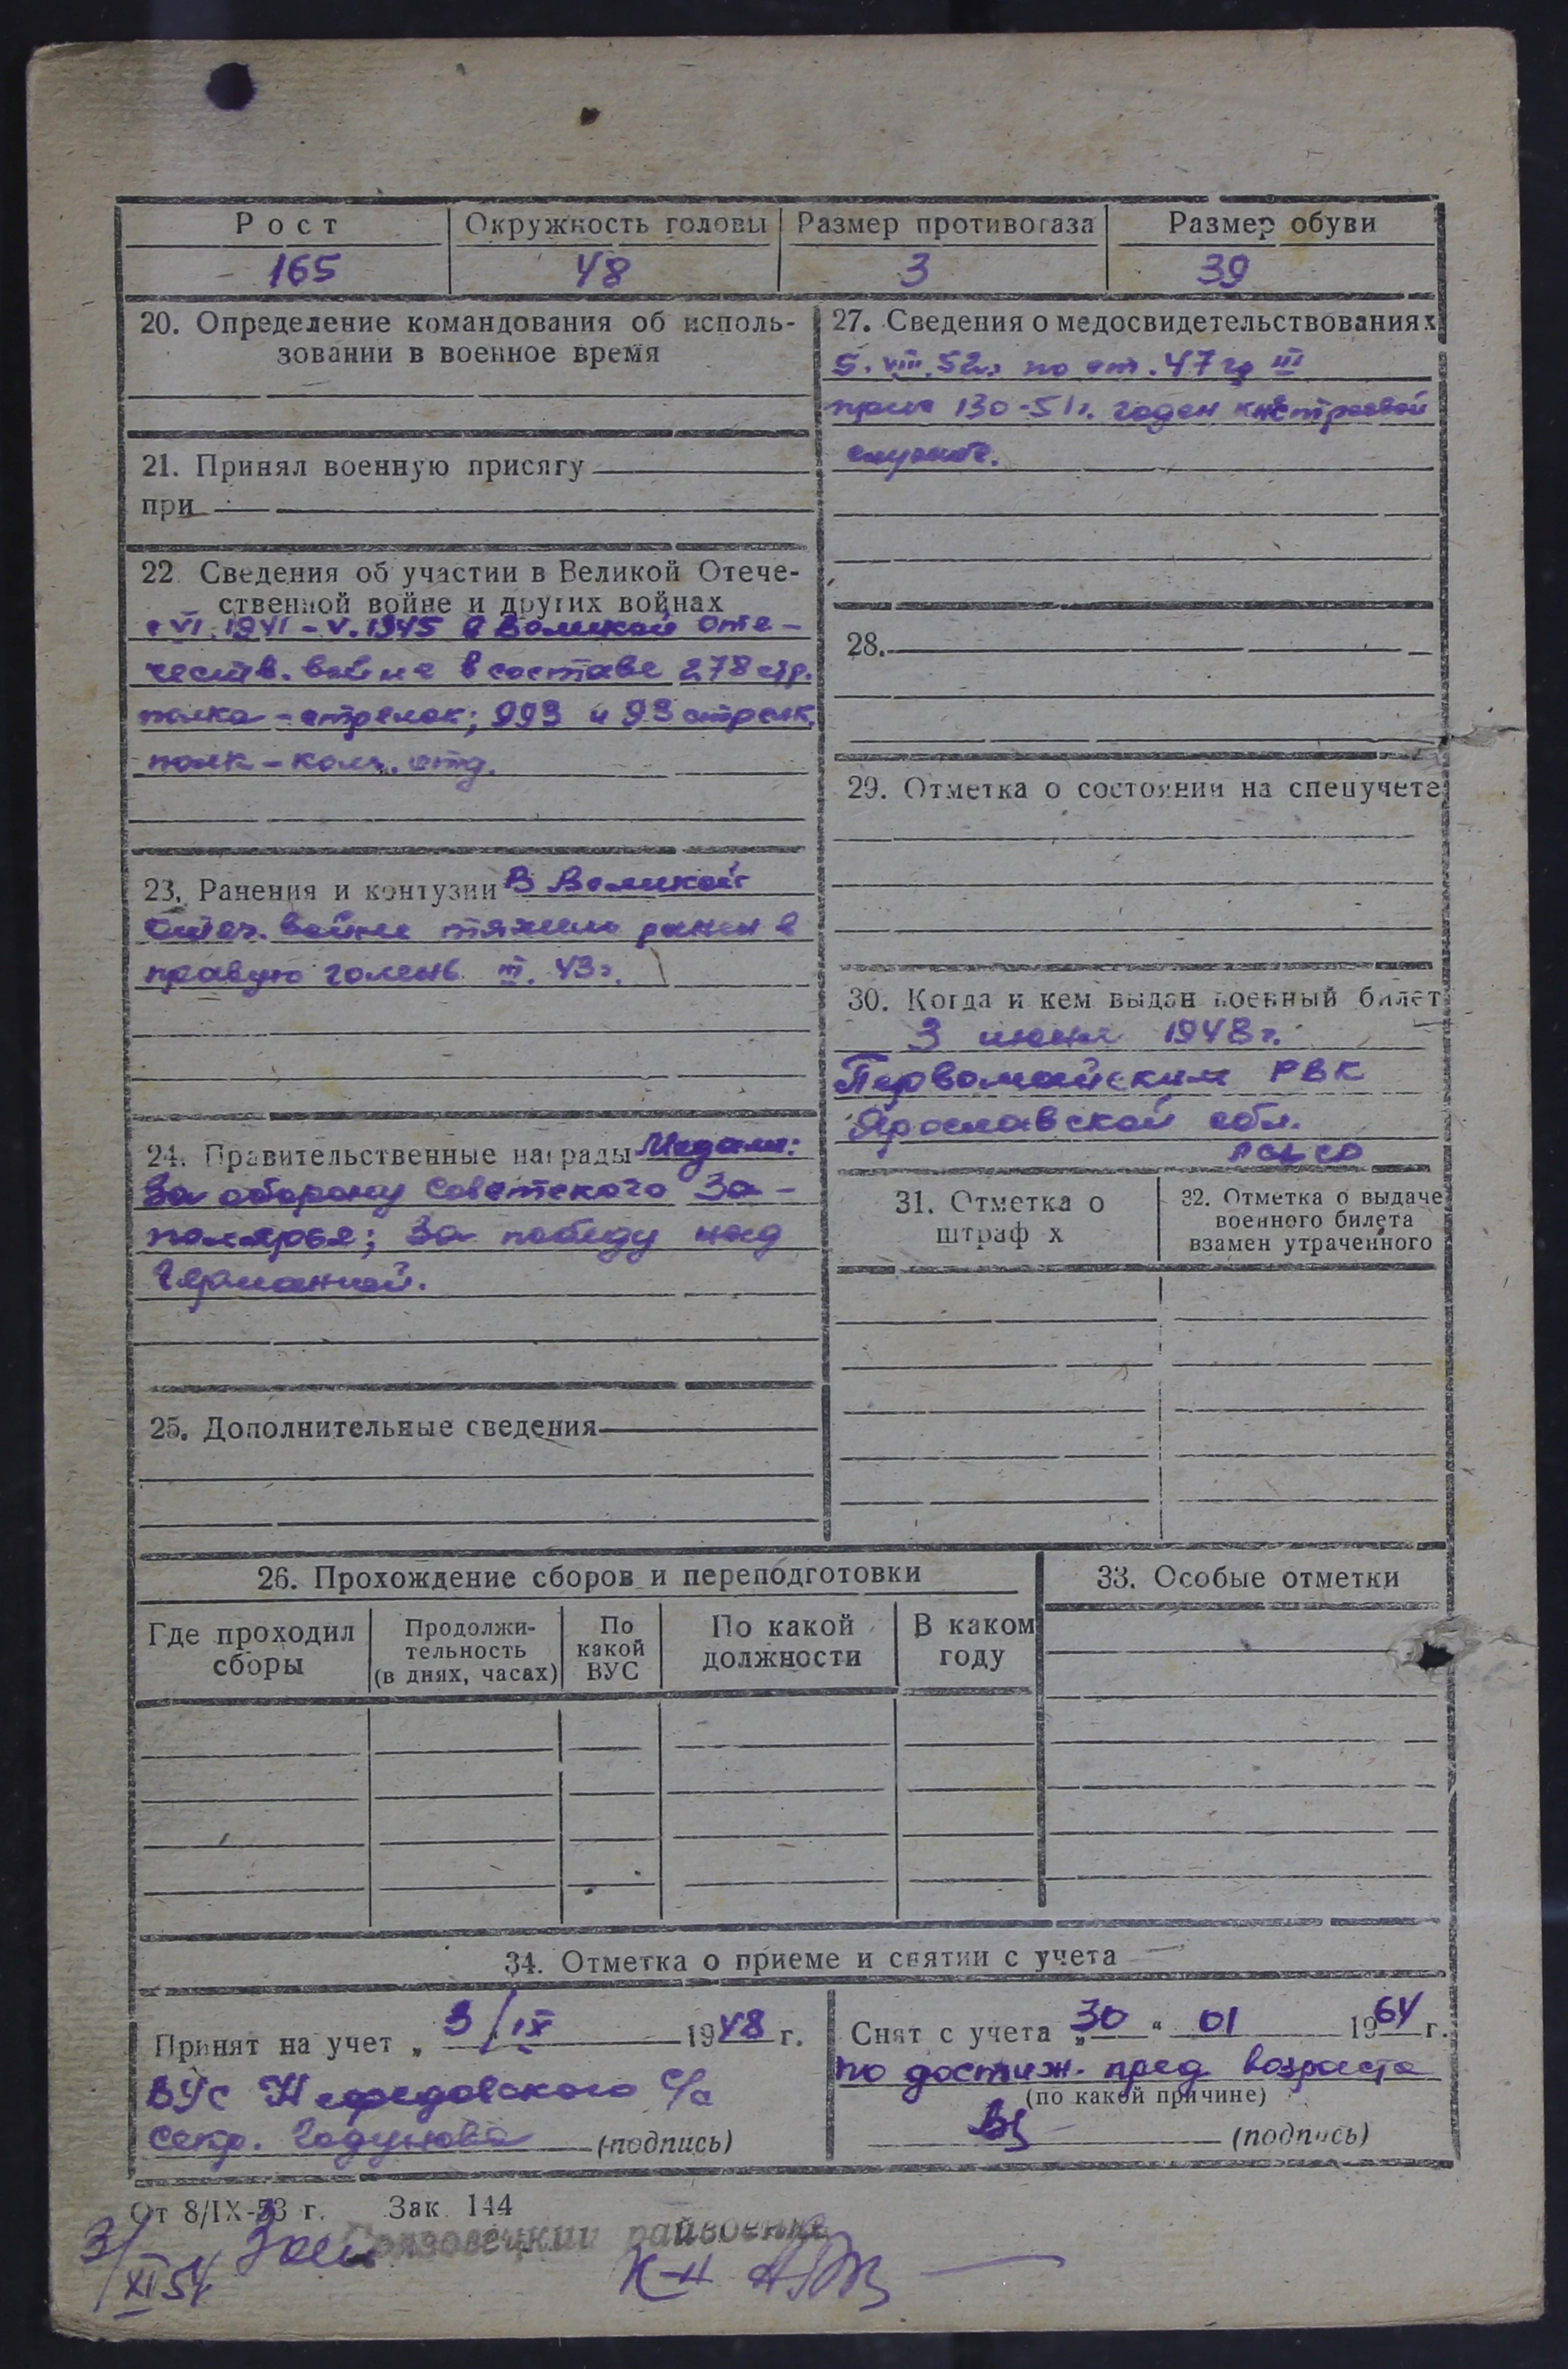 Рост Окружность головы Размер противогаза Размер обуви
165 48 3 39
20. Определение командования об исполь-
зовании в военное время
21. Принял военную присягу
при
22 Сведения об участии в Великой Отече-
ственной войне и других войнах
с VI.1941-V.1945 в Великой Оте-
честв. войне в составе 278 стр.
полка-стрелок; 993 и 93 стрелк.
полк-ком. отд.
23. Ранения и контузии В Великой
Отеч. войне тяжело ранен в
правую голень III. 43г.
24. Правительственные награды Медали:
За оборону Советского За-
полярья; За победу над
Германией.
25. Дополнительные сведения
27. Сведения о медосвидетельствованиях
5.VIII.52г. по ст. 47 гр III
прик 130-51г. годен к нестроевой
службе.
28.
29. Отметка о состоянии на спецучете
30. Когда и кем выдан военный билет
3 июня 1948г.
Первомайским РВК
Ярославской обл.
31. Отметка о
штраф х
32. Отметка о выдаче
военного билета
взамен утраченного
26. Прохождение сборов и переподготовки
Где проходил
сборы
Продолжи-
тельность
(в днях, часах)
По
какой
ВУС
По какой
должности
В каком
году
33. Особые отметки
34. Отметка о приеме и снятии с учета
Принят на учет „ 3/IX 1948 г.
ВУС Нефедовского с/с
Секр. Годунова (подпись)
Снят с учета „30“ 01 1964 г.
по достиж. пред возраста
(по какой причине)
(подпись)
От 8/IX-53 г. Зак 144
Грязовецкий райвоенком
3/XI 54
К-н